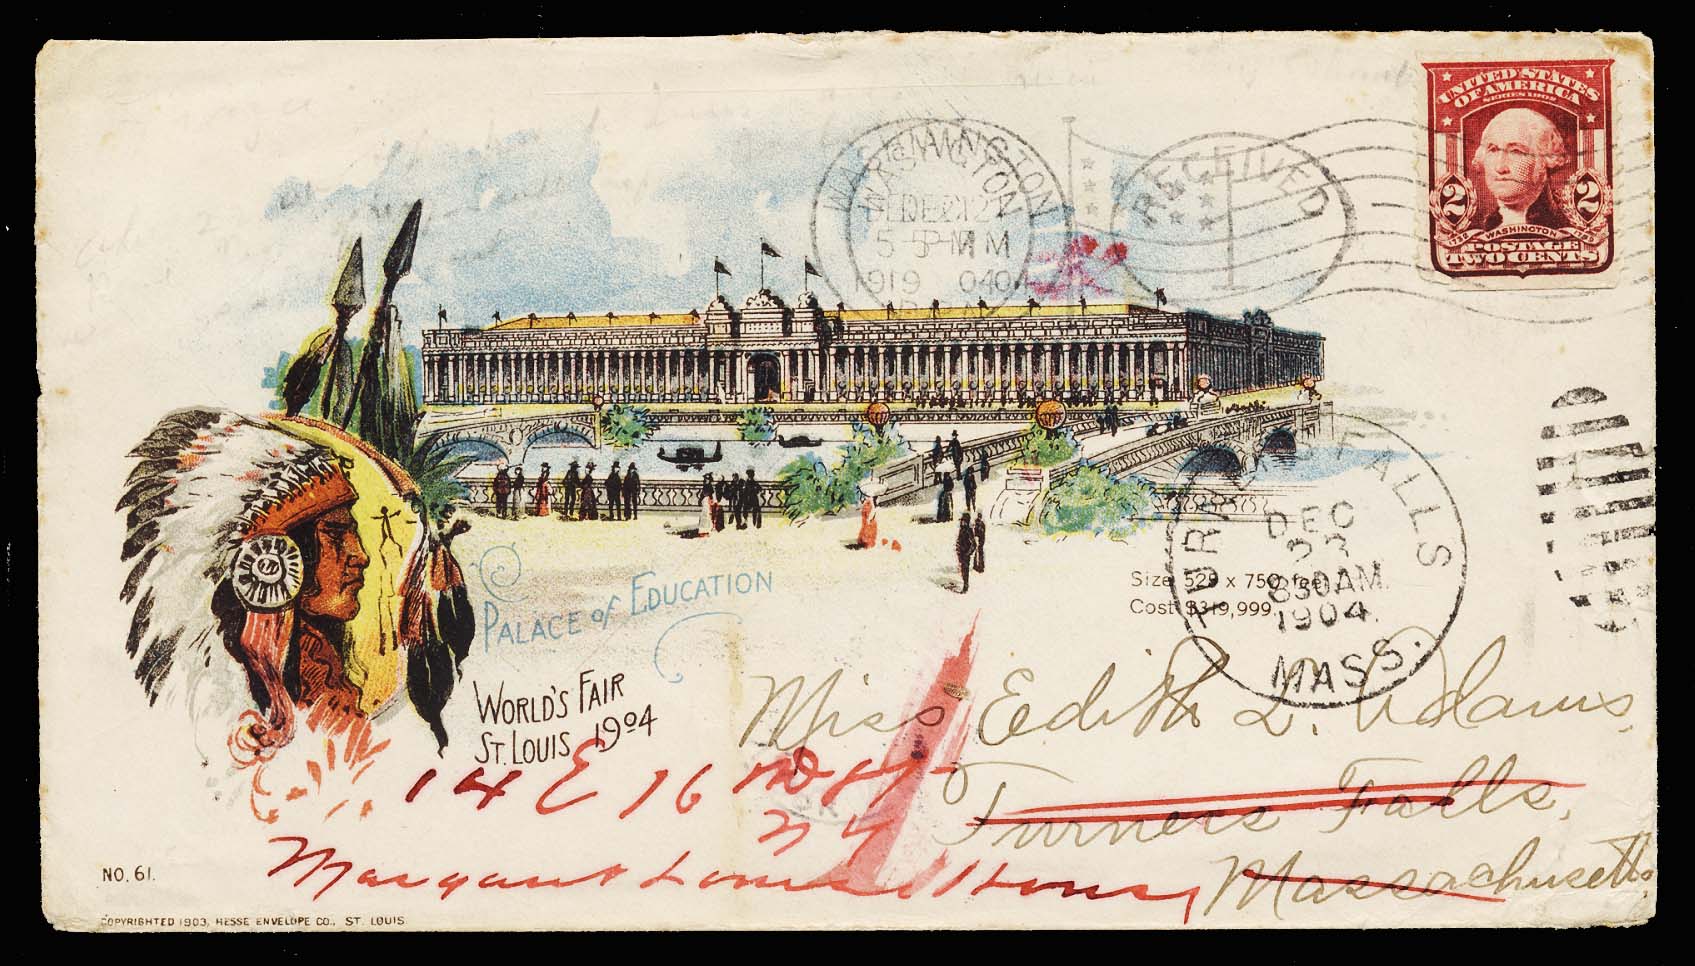 UNITED STATES
OF AMERICA
SERIES 1902
2 2
1732 WASHINGTON 1799
POSTAGE
TWO CENTS
WASHINGTON
5 PM
RECEIVED
PALACE of EDUCATION
WORLD'S FAIR
ST. LOUIS 1904
Size 529 x 750 feet
Cost $319,999.
FALLS
DEC
830AM.
1904.
MASS.
Miss Edith L. Adams,
Turners Falls,
Massachusetts.
14 E 16
N Y
Margaret Louisa Home
NO. 61.
COPYRIGHTED 1903, HESSE ENVELOPE CO., ST. LOUIS